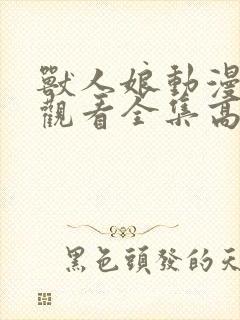 獸人娘動漫
觀看全集高
黑色頭發的天